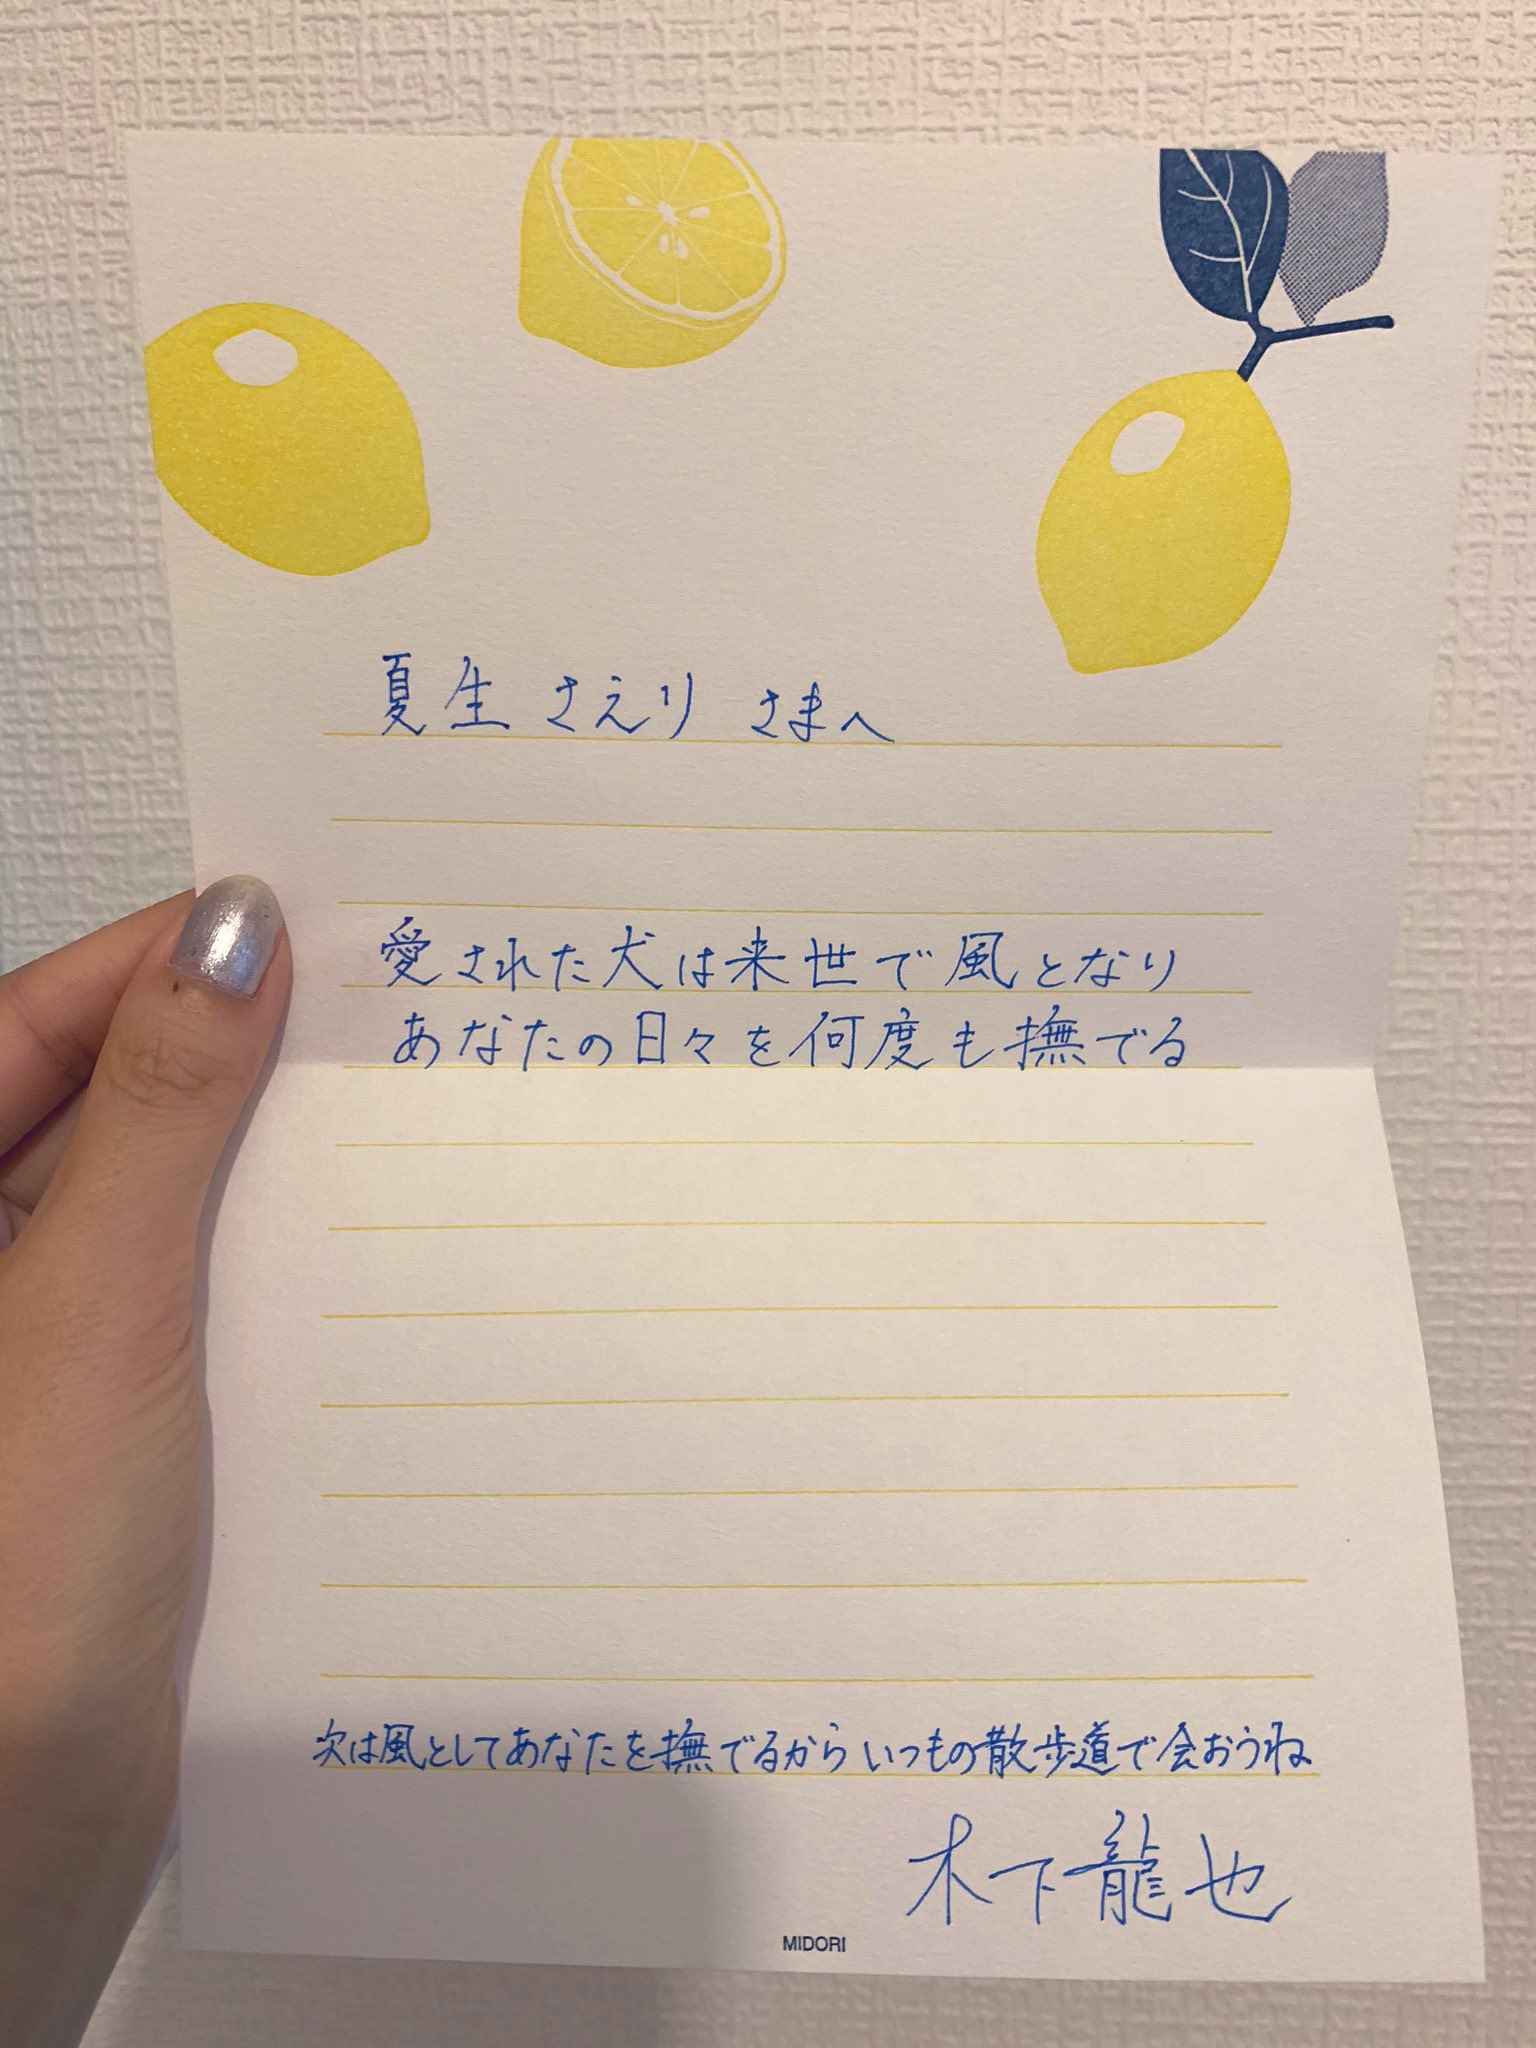 夏生 さえり さまへ
愛された犬は来世で風となり
あなたの日々を何度も撫でる
次は風としてあなたを撫でるからいつもの散歩道で会おうね
木下龍也
MIDORI